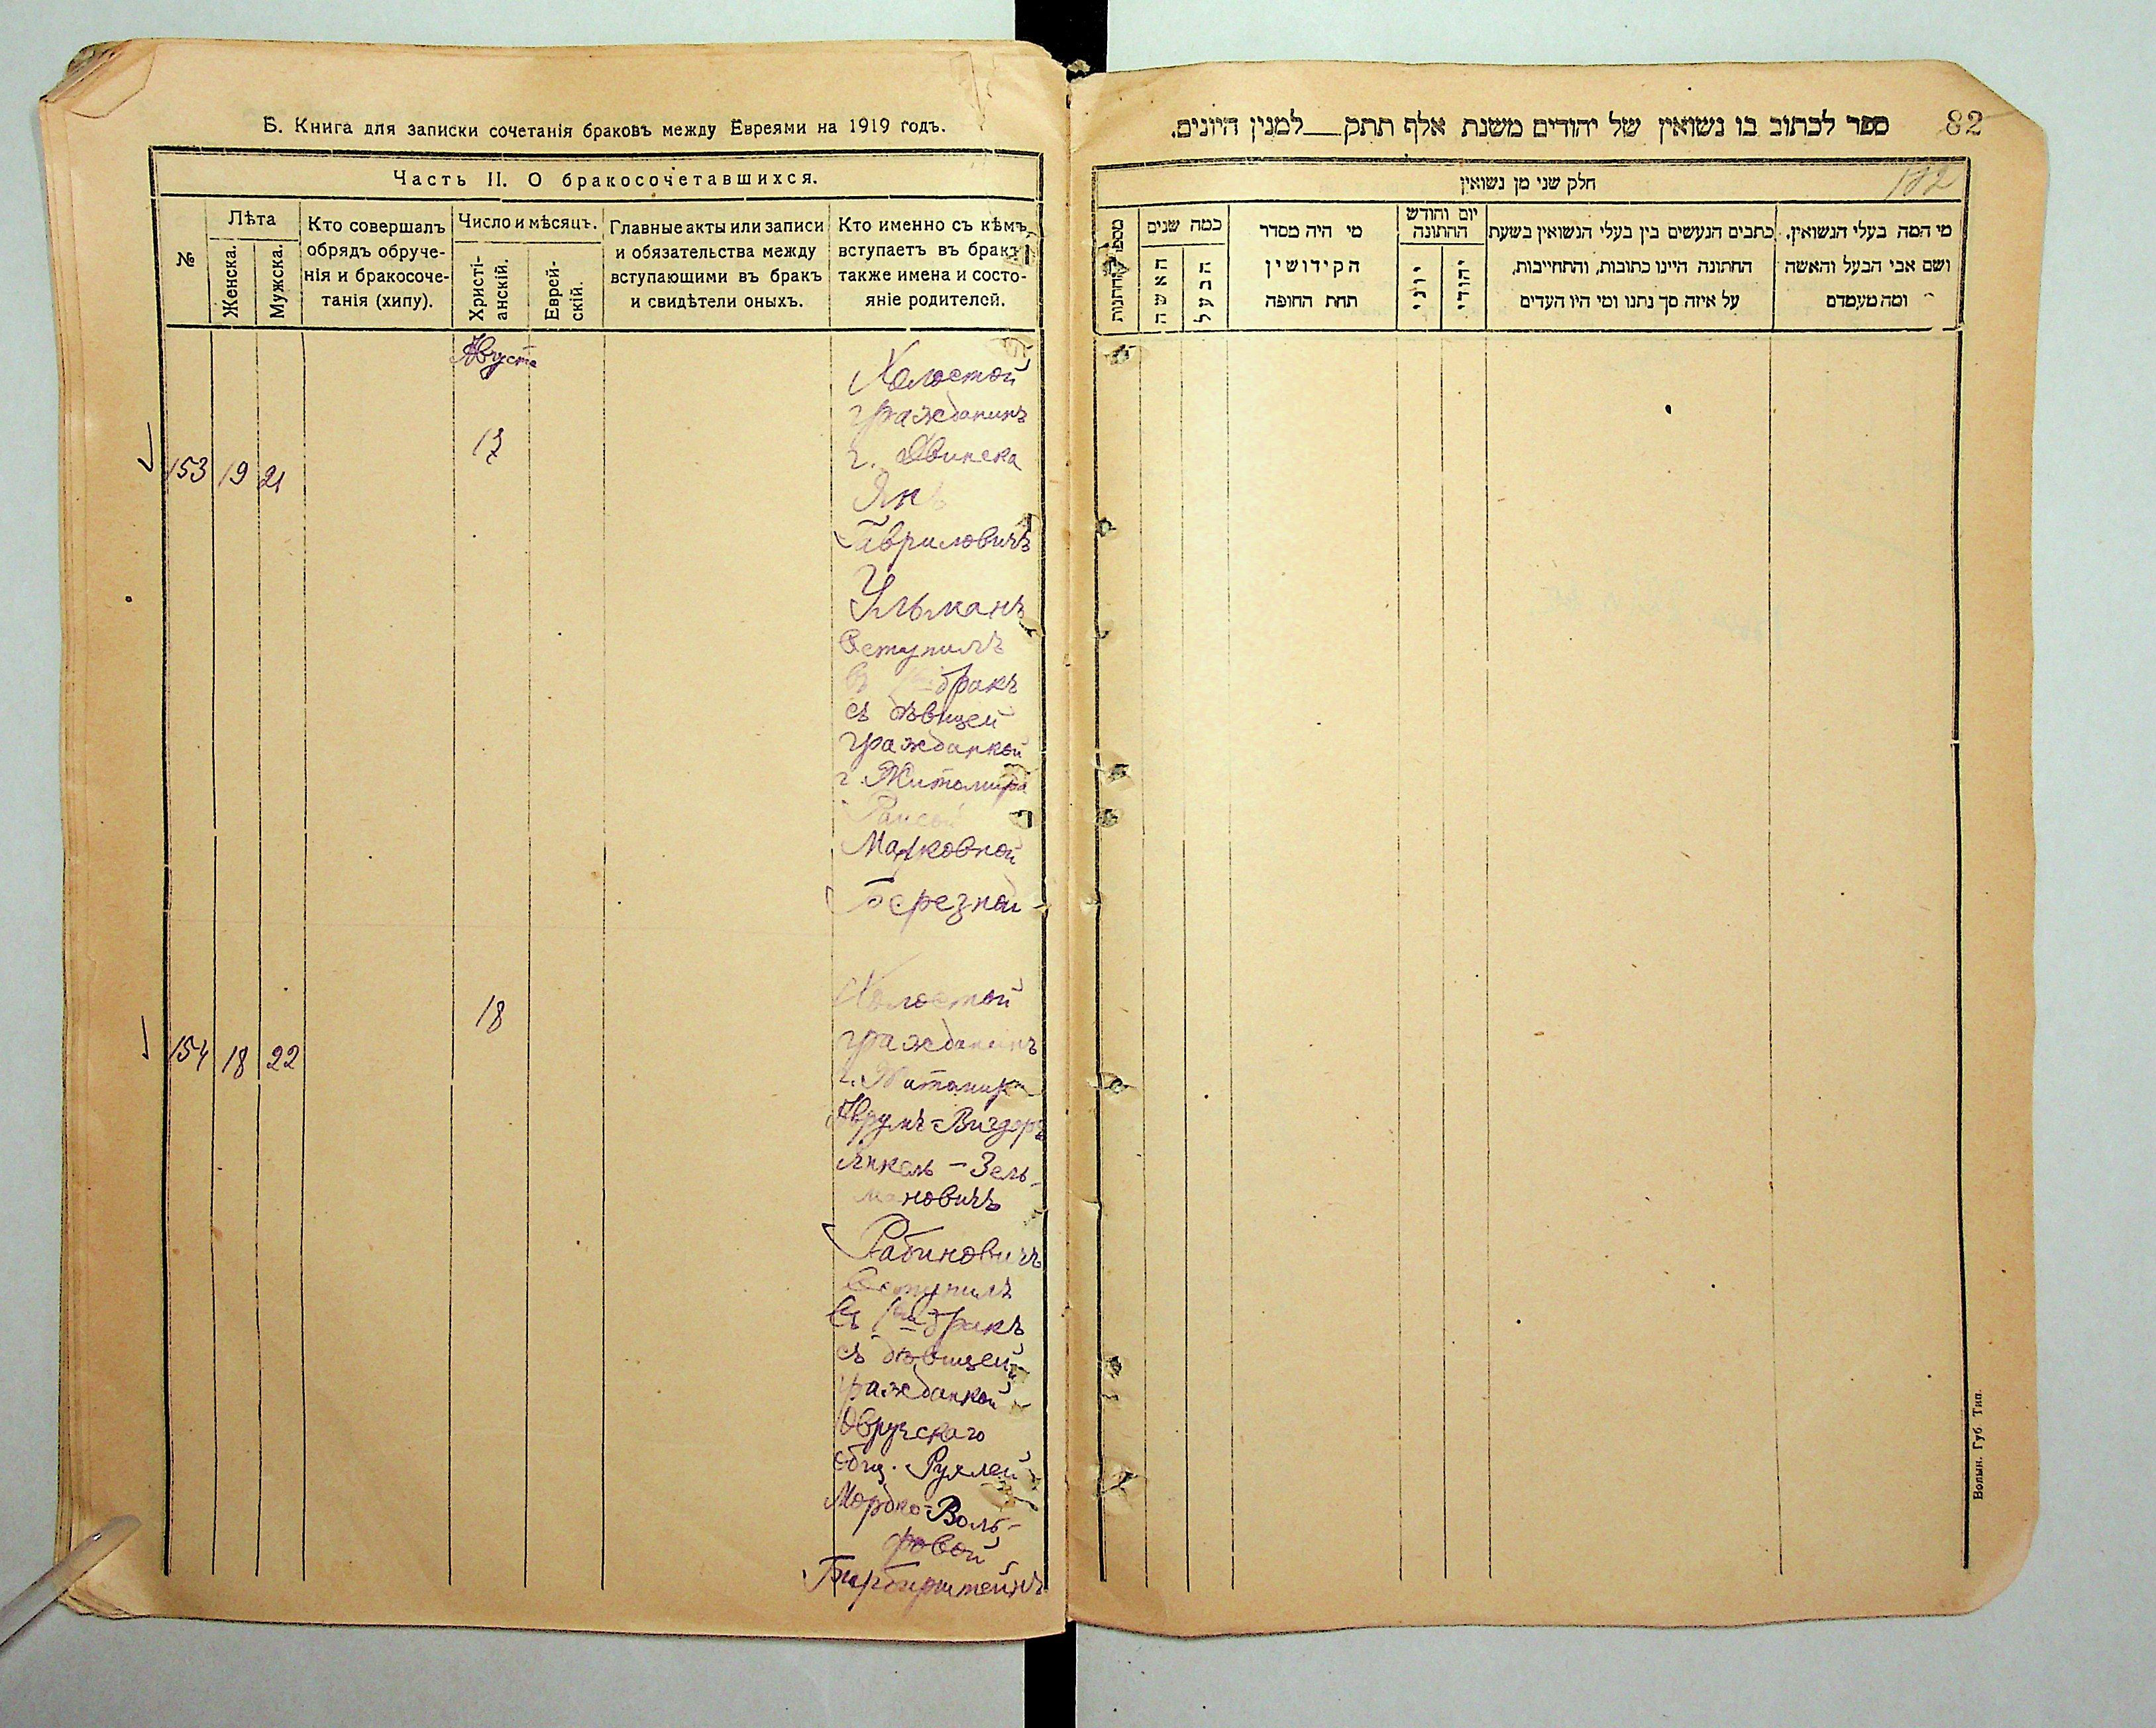 Б. Книга для записки сочетанія браковъ между Евреями на 1919 годъ.
Часть II. О бракосочетавшихся.
№
Лѣта
Женска.
Мужска.
Кто совершалъ
обрядъ обруче-
нія и бракосоче-
танія (хипу).
Число и мѣсяцъ.
Христі-
анскій.
Еврей-
скій.
Главные акты или записи
и обязательства между
вступающими въ бракъ
и свидѣтели оныхъ.
Кто именно съ кѣмъ
вступаетъ въ бракъ
также имена и состо-
яніе родителей.
Августа
153 19 21
Холостой
гражданинъ
г. Двинска
Янъ
Гавриловичъ
Ульманъ
вступилъ
въ 1ый бракъ
съ дѣвицей
гражданкой
г. Житомира
Раисой
Марковной
Березной
154 18 22
18
Холостой
гражданинъ
г. Житомира
Аврумъ-Вигдоръ
Янкель-Зель-
мановичъ
Рабиновичъ
вступилъ
въ 1ый бракъ
съ дѣвицей
гражданкой
Овручскаго
общ. Рухлей
Мордко-Воль-
фовой
82
182
ספר לכתוב בו נשואין של יהודים משנת אלף תתק__למנין היונים.
חלק שני מן נשואין
מי המה בעלי הנשואין,
ושם אבי הבעל והאשה
ומה מעמדם
כתבים הנעשים בין בעלי הנשואין בשעת
החתונה היינו כתובות, והתחייבות,
על איזה סך נתנו ומי היו העדים
יום וחודש
החתונה
יהודי
יוני
מי היה מסדר
הקידושין
תחת החופה
כמה שנים
הבעל
האשה
Волын. Губ. Тип.